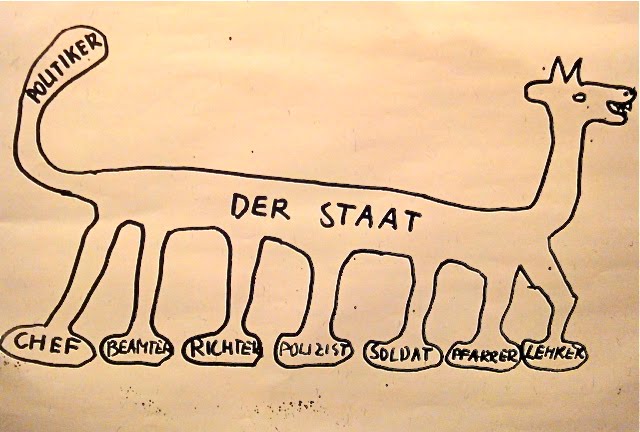 POLITIKER
DER STAAT
CHEF
BEAMTER
RICHTER
POLIZIST
SOLDAT
PFARRER
LEHRER